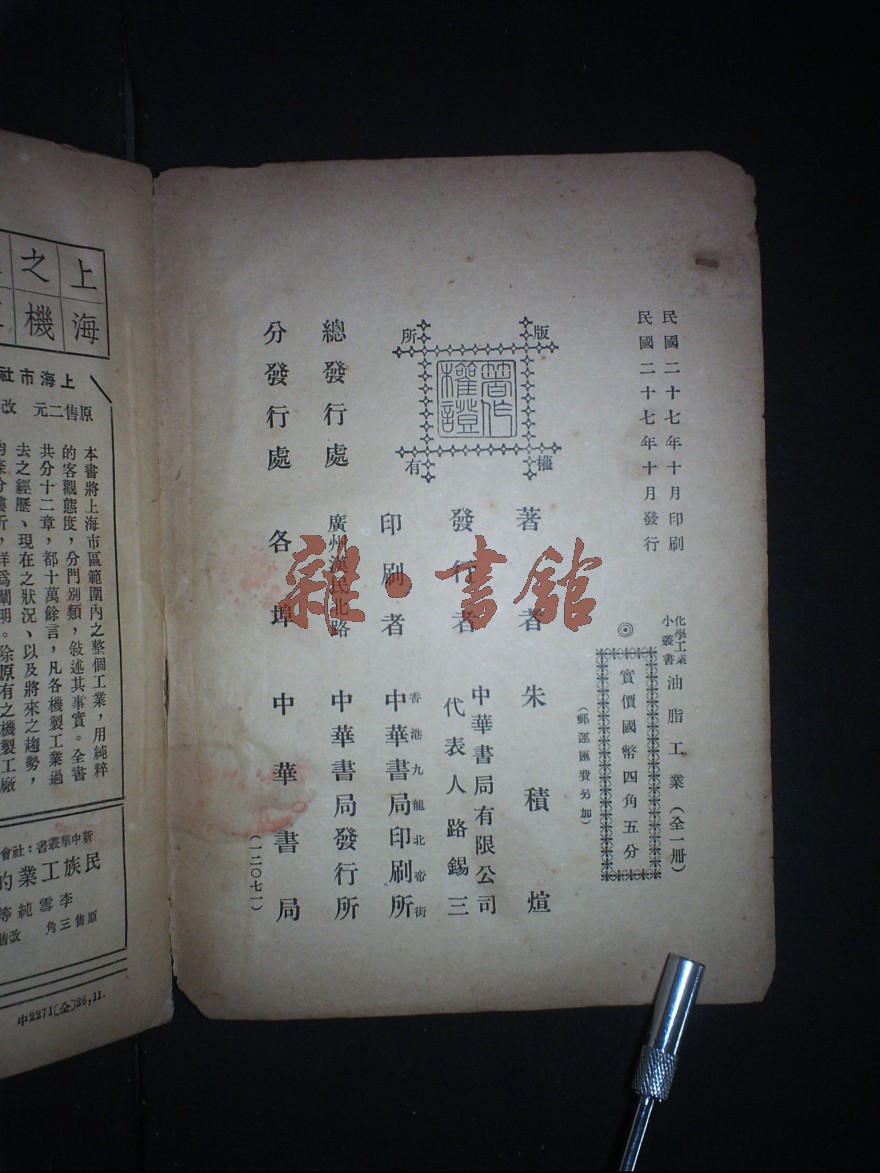 民國二十七年十月印刷
民國二十七年十月發行
化學工業
小叢書
油脂工業(全一册)
◎實價國幣四角五分
(郵運匯費另加)
版權所有
著作權證
著者 朱積煊
發行者 中華書局有限公司
代表人路錫三
印刷者 香港九龍北帝街
中華書局印刷所
總發行處 廣州漢民北路 中華書局發行所
分發行處 各埠 中華書局
(一二〇七一)
雜·書館
上海
之機
上海市社
原售二元 改
本書將上海市區範圍內之整個工業,用純粹
的客觀態度,分門別類,敍述其事實。全書
共分十二章,都十萬餘言,凡各機製工業過
去之經歷、現在之狀況、以及將來之趨勢,
闡明。除原有之機製工廠
新中華叢書:社會
民族工業的
李雪純等
原售三角 改售
中2271(全)26,11.